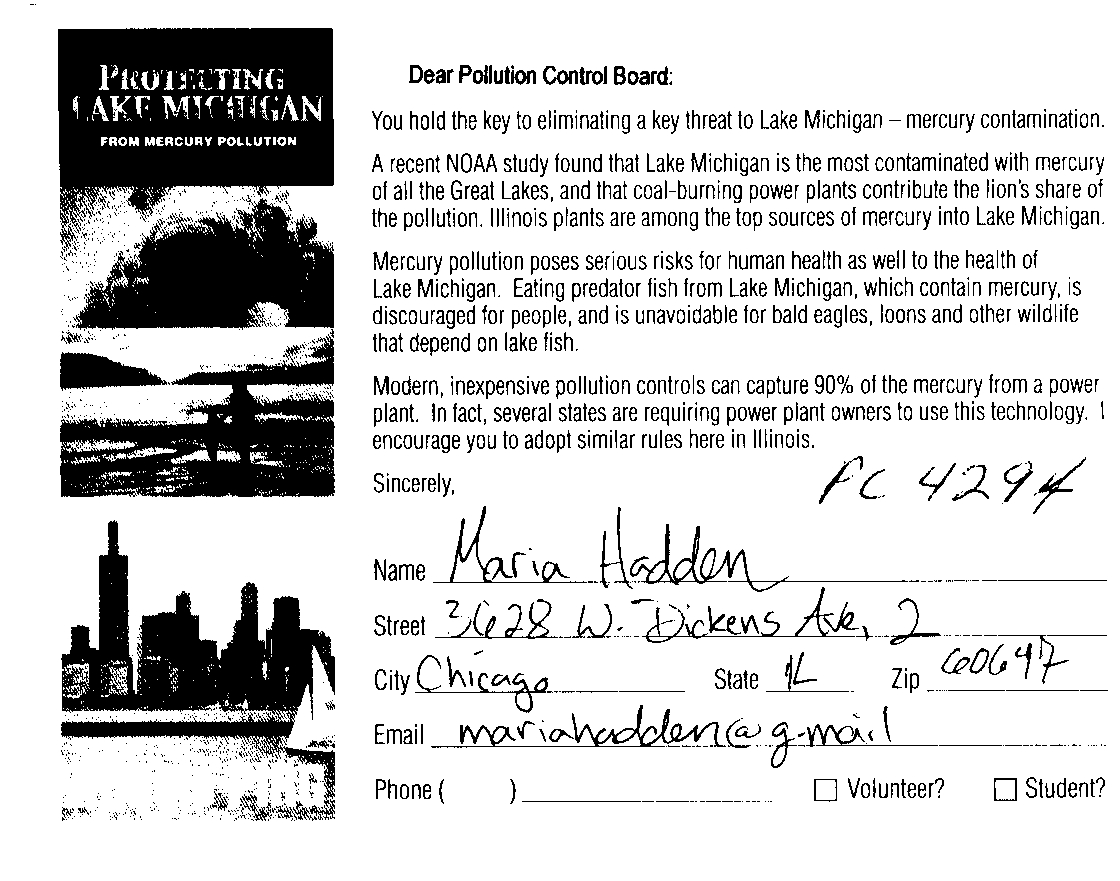 PROTECTING
LAKE MICHIGAN
FROM MERCURY POLLUTION
Dear Pollution Control Board:
You hold the key to eliminating a key threat to Lake Michigan – mercury contamination.
A recent NOAA study found that Lake Michigan is the most contaminated with mercury
of all the Great Lakes, and that coal-burning power plants contribute the lion's share of
the pollution. Illinois plants are among the top sources of mercury into Lake Michigan.
Mercury pollution poses serious risks for human health as well to the health of
Lake Michigan. Eating predator fish from Lake Michigan, which contain mercury, is
discouraged for people, and is unavoidable for bald eagles, loons and other wildlife
that depend on lake fish.
Modern, inexpensive pollution controls can capture 90% of the mercury from a power
plant. In fact, several states are requiring power plant owners to use this technology. I
encourage you to adopt similar rules here in Illinois.
Sincerely,
PC 4294
Name Maria Hadden
Street 3628 W. Dickens Ave, 2
City Chicago State IL Zip 60647
Email mariahadden@g-mail
Phone ( )
☐ Volunteer? ☐ Student?